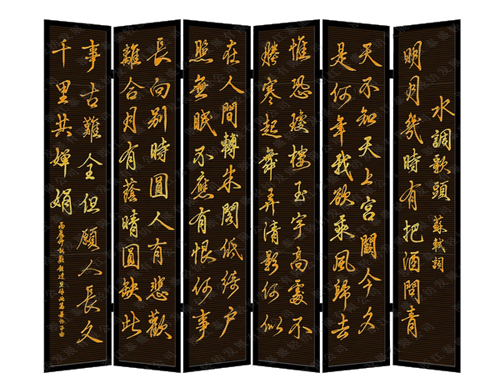 水調歌頭 蘇軾詞
明月幾時有把酒問青
天不知天上宮闕今夕
是何年我欲乘風歸去
惟恐瓊樓玉宇高處不
勝寒起舞弄清影何似
在人間轉朱閣低綺户
照無眠不應有恨何事
長向別時圓人有悲歡
離合月有蔭晴圓缺此
事古難全但願人長久
千里共嬋娟